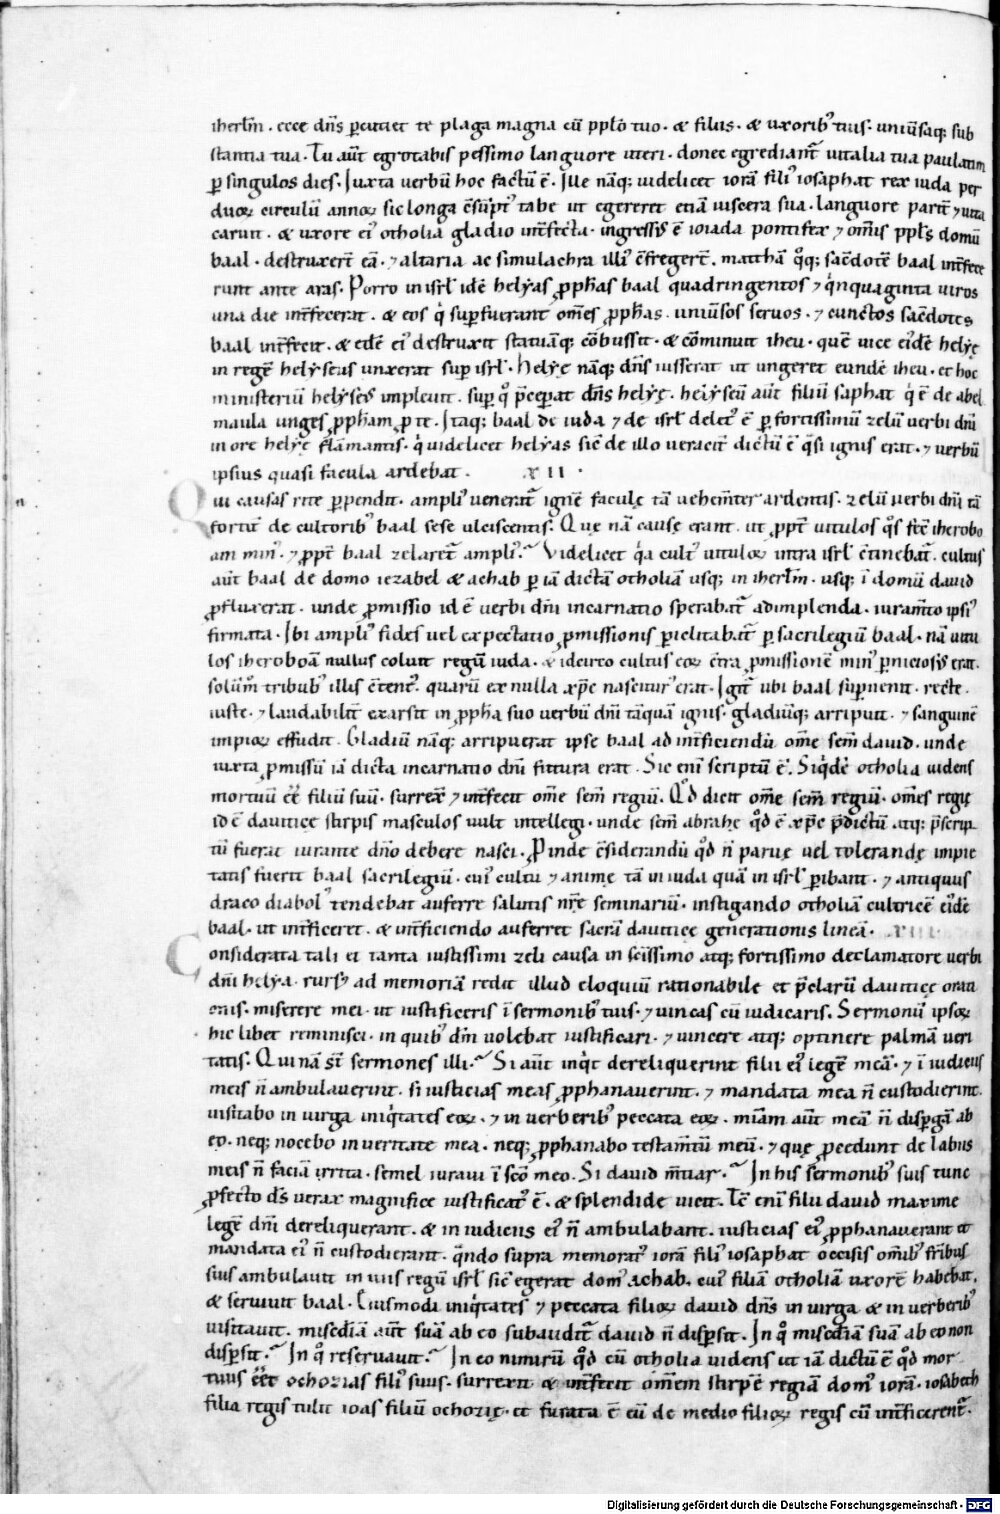 iherlm̄. ecce dn̄s ꝑcutiet te plaga magna cū pp̄lo tuo. & filiis. & uxorib; tuis. uniūsaq; sub
stantia tua. Tu aūt egrotabis pessimo languore uteri. donec egrediant̄ uitalia tua paulatim
ꝑ singulos dies. Iuxta uerbū hoc factū ē. Ille nāq; uidelicet iorā fili᷒ iosaphat rex iuda per
duoꝝ circulū annoꝝ sic longa c̄sūpt᷒ tabe ut egereret etiā uiscera sua. languore parit̄ ⁊ uita
caruit. & uxore ei᷒ otholia gladio int̄fecta. ingressus ē ioiada pontifex ⁊ om̄is ppl̄s domū
baal. destruxer̄t eā. ⁊ altaria ac simulachra illi᷒ c̄fregert̄. matthā qͦq; sac̄dotē baal int̄fece
runt ante aras. Porro in isrl̄ idē helyas ꝓph̄as baal quadringentos ⁊ qͥnquaginta uiros
una die int̄fecerat. & eos qͥ suꝑfuerant om̄es ꝓph̄as. uniūsos seruos. ⁊ cunctos sac̄dotes
baal int̄fecit. & edē ei᷒ destruxit statuāq; cōbussit. & cōminuit iheu. quē uice ei᷒dē helyę
in regē helyseus unxerat suꝑ isrl̄. Helyę nāq; dn̄s iusserat ut ungeret eundē iheu. et hoc
ministeriū helyseus impleuit. suꝑ qͦ p̄ceperat dn̄s helyę. helyseū aūt filiū saphat qͥ ē de abel
maula unges ꝓph̄am ꝓ te. Itaq; baal de iuda ⁊ de isrl̄ delet᷒ ē ꝑ fortissimū zelū uerbi dn̄i
in ore helyę flām̄antis. qͥ uidelicet helyas sic̄ de illo ueracit̄ dictū ē qͣsi ignis erat. ⁊ uerbū
ipsius quasi facula ardebat. XII.
Qui causas rite ꝑpendit. ampli᷒ ueneratͬ ignē faculę tā uehem̄ter ardentis. zelū uerbi dn̄i tā
fortit̄ de cultorib᷒ baal sese ulciscentis. Quę nā cause erant. ut ꝓpt̄ uitulos qͦs fec̄ iherobo
am min᷒. ⁊ ꝓpt̄ baal zelaretͬ ampli᷒. Videlicet qͥa cult᷒ uituloꝝ intra isrl̄ c̄tinebatͬ. cultus
aūt baal de domo iezabel & achab ꝑ iā dictā otholiā usq; in iherlm̄. usq; ī domū dauid
ꝓfluxerat. unde ꝓmissio id ē uerbi dn̄i incarnatio sperabatͬ adimplenda. iuram̄to ipsi᷒
firmata. Ibi ampli᷒ fides uel expectatio ꝓmissionis ꝑiclitabatͬ ꝑ sacrilegiū baal. nā uitu
los iheroboā nullus coluit regū iuda. & idcirco cultus eoꝝ c̄tra ꝓmissionē min᷒ ꝑniciosus erat.
solūm̄ tribub᷒ illis c̄tent᷒. quarū ex nulla xp̄c nascitur᷒ erat. Igit̄ ubi baal suꝑuenit. recte.
iuste. ⁊ laudabilit̄ exarsit in ꝓph̄a suo uerbū dn̄i tāquā ignis. gladiūq; arripuit. ⁊ sanguinē
impioꝝ effudit. Gladiū nāq; arripuerat ipse baal ad int̄ficiendū om̄e sem̄ dauid. unde
iuxta ꝓmissū iā dicta incarnatio dn̄i futura erat. Sic eni scriptū ē. Siqͥdē otholia uidens
mortuū eē filiū suū. surrex̄ ⁊ int̄fecit om̄e sem̄ regiū. Qͦd dicit om̄e sem̄ regiū. om̄es regię
id ē dauiticę stirpis masculos uult intellegi. unde sem̄ abrahę qͦd ē xp̄c p̄dictū atq; p̄scrip
tū fuerat iurante dn̄o debere nasci. Proinde c̄siderandū qͦd n̄ paruę uel tolerandę impie
tatis fuerit baal sacrilegiū. cui᷒ cultu ⁊ animę tā in iuda quā in isrl̄ ꝑibant. ⁊ antiquus
draco diabol᷒ tendebat auferre salutis nr̄e seminariū. instigando otholiā cultricē ei᷒dē
baal. ut int̄ficeret. & int̄ficiendo auferret sacrā dauiticę generationis lineā. XIII.
Considerata tali et tanta iustissimi zeli causa in sc̄issimo atq; fortissimo declamatore uerbi
dn̄i helya. rurs᷒ ad memoriā redit illud eloquiū rationabile et p̄clarū dauiticę orati
onis. miserere mei. ut iustificeris ī sermonib᷒ tuis. ⁊ uincas cū iudicaris. Sermonū ipsoꝝ
hic libet reminisci. in quib᷒ dn̄m uolebat iustificari. ⁊ uincere atq; optinere palmā ueri
tatis. Qui nā sūt sermones illi. Si aūt inqͥt dereliquerint filii ei᷒ legē meā. ⁊ ī iudiciis
meis n̄ ambulauerint. si iusticias meas ꝓphanauerint. ⁊ mandata mea n̄ custodierint.
uisitabo in uirga iniqͥtates eoꝝ. ⁊ in uerberib᷒ peccata eoꝝ. miām aūt meā n̄ disꝑgā ab
eo. neq; nocebo in ueritate mea. neq; ꝓphanabo testam̄tū meū. ⁊ quę ꝓcedunt de labiis
meis n̄ faciā irrita. semel iuraui ī sc̄o meo. Si dauid m̄tiar. In his sermonib᷒ suis tunc
ꝓfecto dс̄ uerax magnifice iustificat᷒ ē. & splendide uicit. Tc̄ eni filii dauid maxime
legē dn̄i dereliquerant. & in iudiciis ei᷒ n̄ ambulabant. iusticias ei᷒ ꝓphanauerant et
mandata ei᷒ n̄ custodierant. qͣndo supra memorat᷒ iorā fili᷒ iosaphat occisis om̄ib᷒ fr̄ibus
suis ambulauit in uiis regū isrl̄ sic̄ egerat dom᷒ achab. cui᷒ filiā otholiā uxorē habebat.
& seruiuit baal. Eiusmodi iniqͥtates ⁊ peccata filioꝝ dauid dn̄s in uirga & in uerberib᷒
uisitauit. mis̄cdiā aūt suā ab eo subauditͬ dauid n̄ disꝑsit. In qͦ mis̄cdiā suā ab eo non
disꝑsit. In qͦ reseruauit. In eo nimirū qͦd cū otholia uidens ut iā dictū ē qͦd mor
tuus eēt ochozias fili᷒ suus. surrexit & int̄fecit om̄em stirpē regiā dom᷒ iorā. iosabeth
filia regis tulit ioas filiū ochozię. et furata ē eū de medio filioꝝ regis cū int̄ficerentͬ.
Digitalisierung gefördert durch die Deutsche Forschungsgemeinschaft - DFG